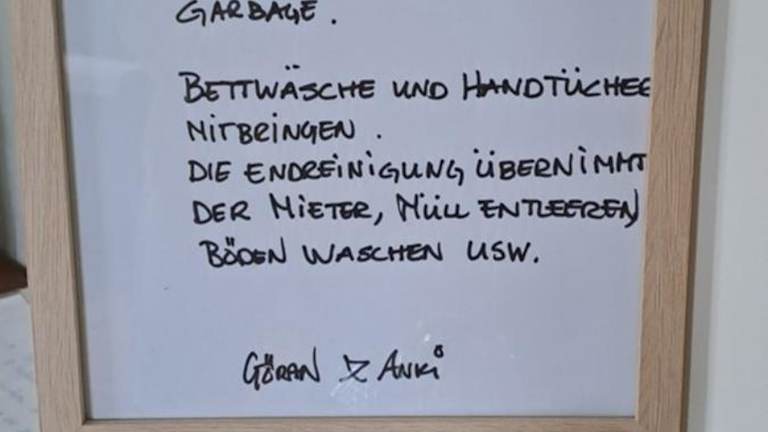 GARBAGE.
BETTWÄSCHE UND HANDTÜCHER
MITBRINGEN.
DIE ENDREINIGUNG ÜBERNIMMT
DER MIETER, MÜLL ENTLEEREN,
BÖDEN WASCHEN USW.
GÖRAN & ANKI